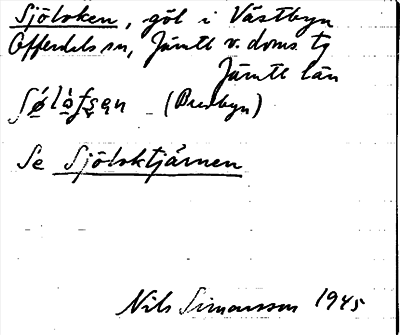 Sjölsken, göl i Västbyn
Offerdals sn, Jämtl v. doms tg
Jämtl län
(Bredbyn)
Se Sjölsktjärnen
Nils Simonsson 1945